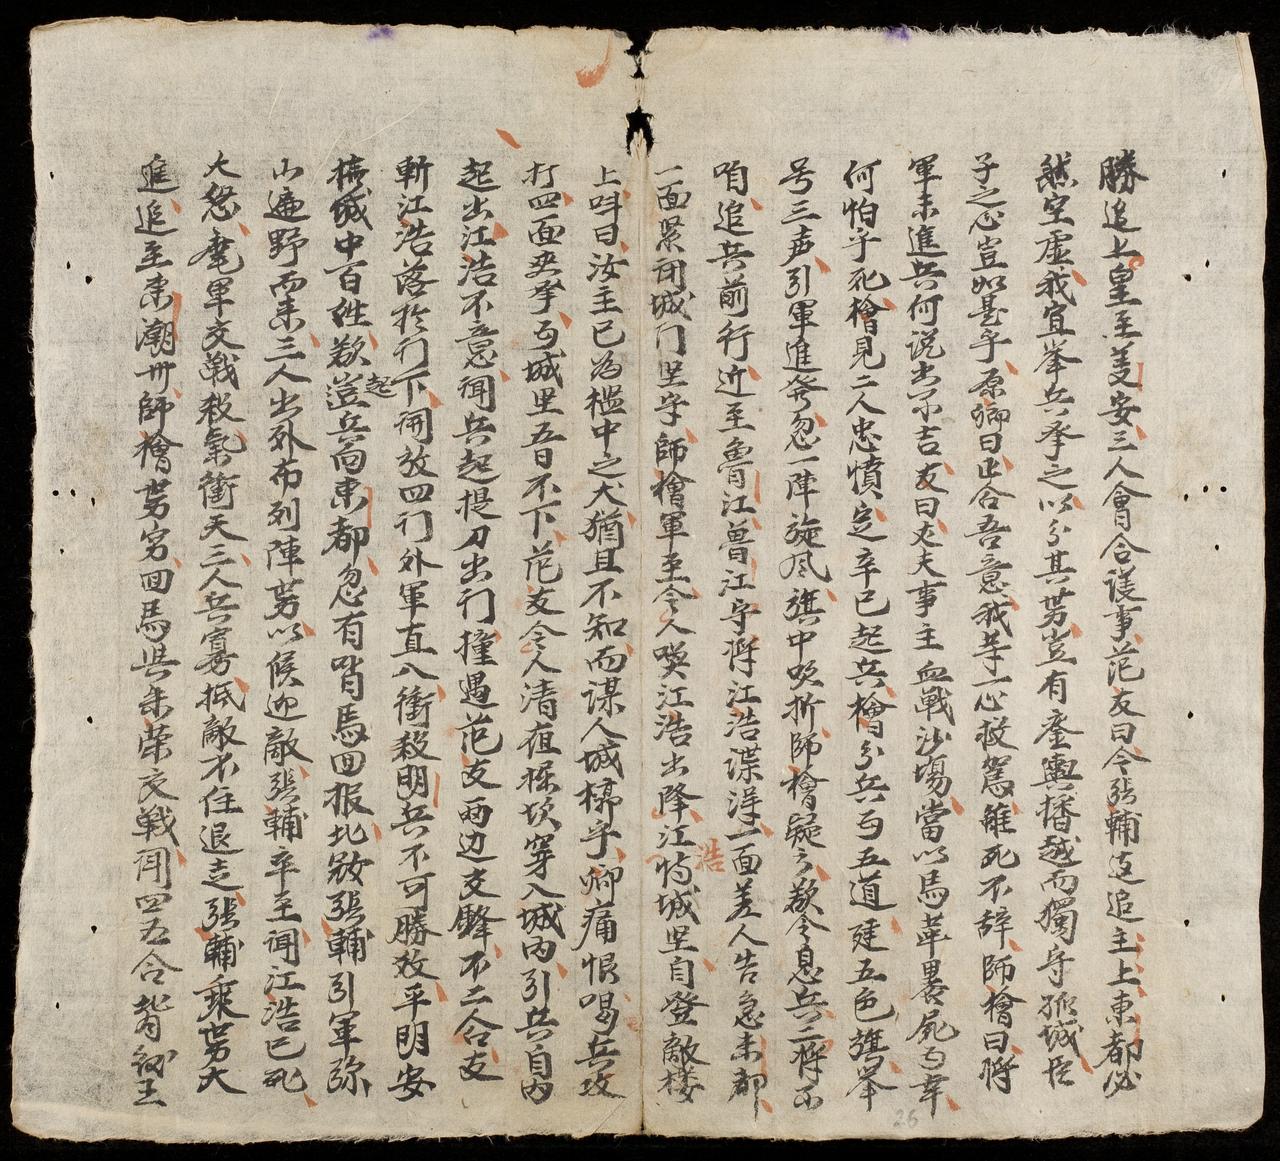 勝追上皇至羡安三人會合議事范友曰今張輔這追主上東都必
然空虛我宜举兵承之以分其势豈有銮輿播越而獨守孤城臣
子之心豈如甚乎原卿曰正合吾意我等一心救駕雖死不辞師檜曰將
軍未進兵何説出不吉友曰丈夫事主血戰沙塲當以馬革畧屍為幸
何怕乎死檜見二人忠憤定卒已起兵檜分兵為五道建五色旗举
号三声引軍進發忽一陣旋風旗中吹折師檜疑之欲令息兵二將不
咱追兵前行近至魯江曽江守將江浩諜淂一面差人告急東都
一面緊闭城门坚守師檜軍至令人喚江浩出降江浩恃城坚自登敵楼
上呌曰汝主已為檻中之犬猶且不知而謀人城槗乎卿痛恨喝兵攻
打四面夾拏為城里五日不下范友令人清疽掘坎穿入城内引兵自内
起出江浩不意聞兵起提刀出门撞遇范友両边交鋒不二合友
斬江浩落於门下開放四门外軍直入衝殺明兵不可勝敌平明安
撫城中百姓欲起兵向東都忽有哨馬回报北冦張輔引軍弥
山遍野而来三人出外布列陣势以候迎敵張輔卒至聞江浩已死
大怒麾軍交戰殺氣衝天三人兵寡抵敵不住退走張輔乘势大
進追至東潮州師檜势穷回馬與朱荣交戰闬四五合背剑王